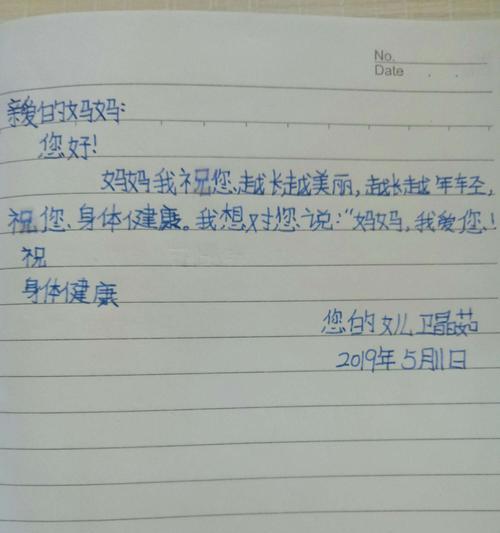 No.
Date . .
亲爱的妈妈:
您好!
妈妈我祝您越长越美丽,越长越年轻,
祝您身体健康。我想对您说:“妈妈,我爱您!
祝
身体健康
您的女儿 卫晶茹
2019年5月11日